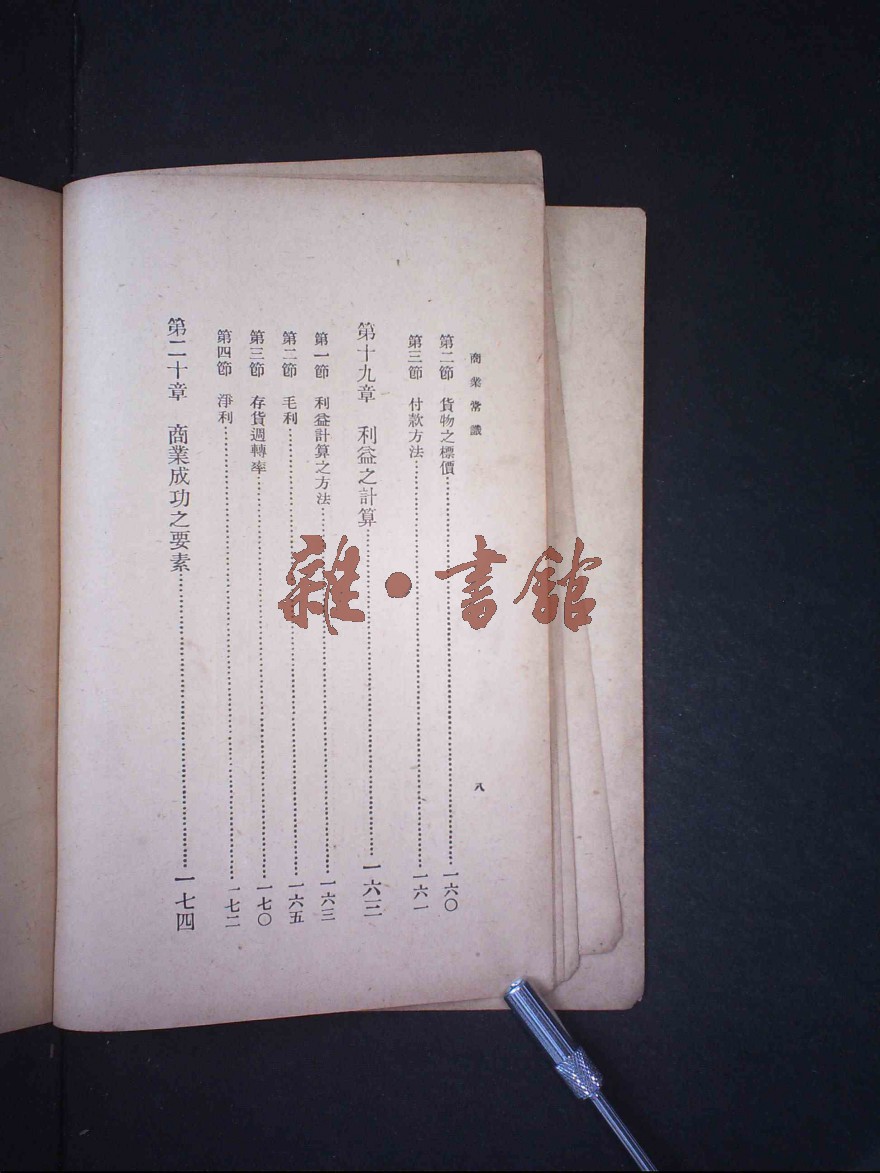 商業常識
八
第二節　貨物之標價……一六〇
第三節　付款方法……一六一
第十九章　利益之計算……一六三
第一節　利益計算之方法……一六三
第二節　毛利……一六五
第三節　存貨週轉率……一七〇
第四節　淨利……一七二
第二十章　商業成功之要素……一七四
雜·書館